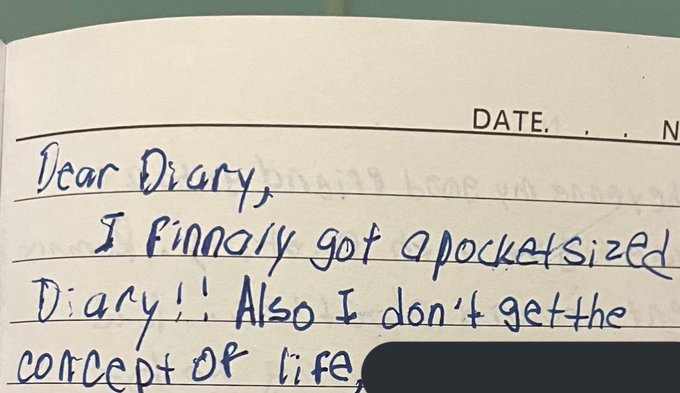 DATE. . . N
Dear Diary,
I finnaly got a pocket sized
Diary!! Also I don't get the
concept of life,